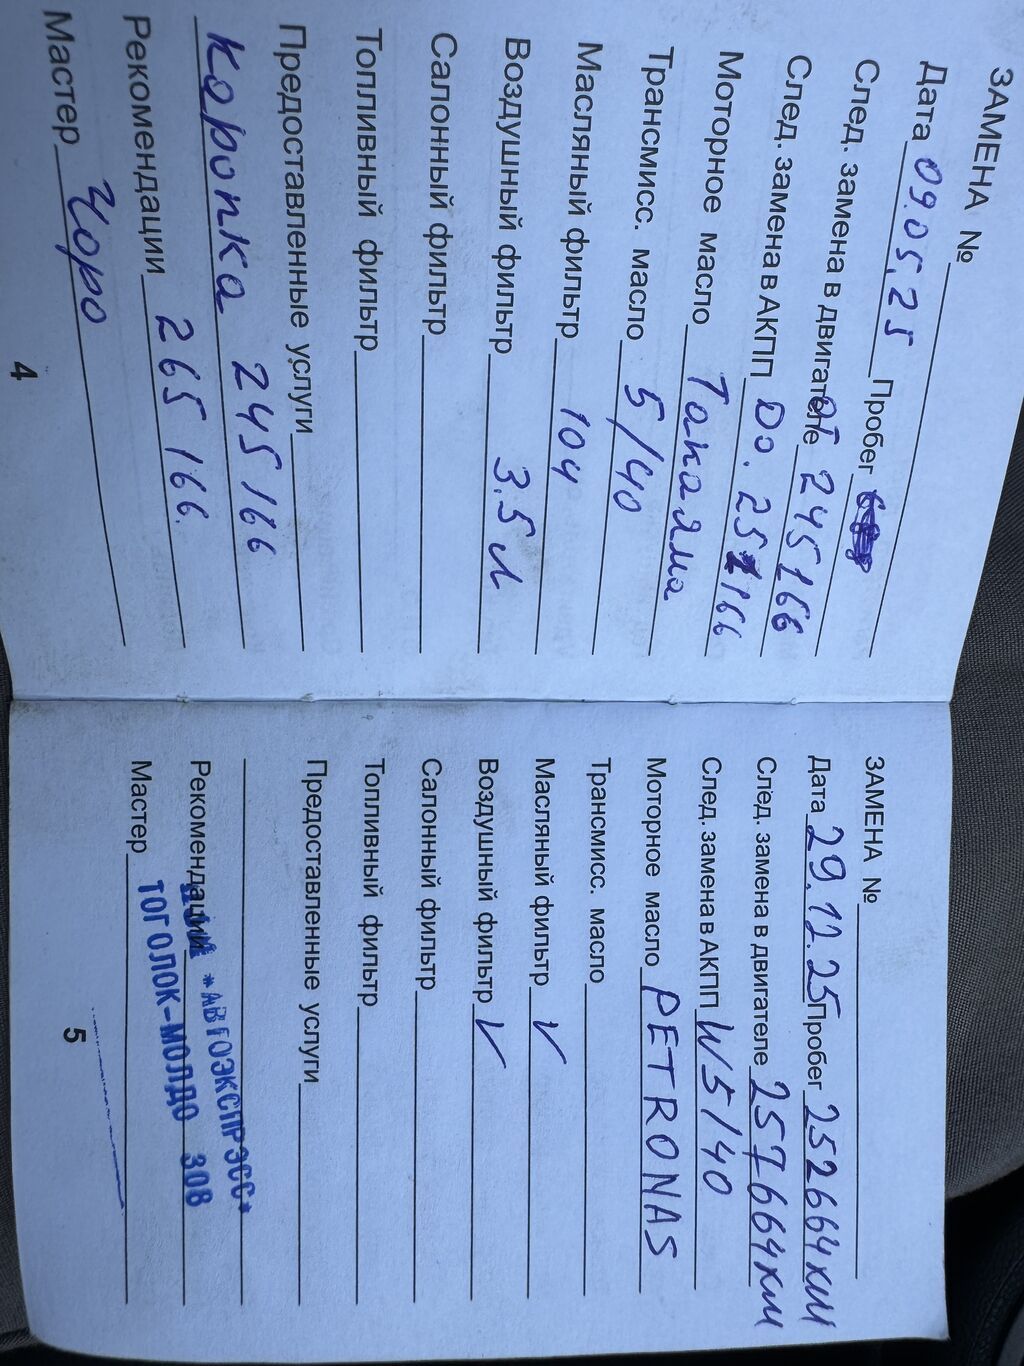 ЗАМЕНА №
Дата 09.05.25 Пробег
След. замена в двигателе от 245166
След. замена в АКПП До. 251166
Моторное масло Такаяма
Трансмисс. масло 5/40
Масляный фильтр 104
Воздушный фильтр 3.5л
Салонный фильтр
Топливный фильтр
Предоставленные услуги
Каропка 245166
Рекомендации 265166.
Мастер Чоро
4
ЗАМЕНА №
Дата 29.12.25 Пробег 252664км
След. замена в двигателе 257664км
След. замена в АКПП W5/40
Моторное масло PETRONAS
Трансмисс. масло
Масляный фильтр V
Воздушный фильтр V
Салонный фильтр
Топливный фильтр
Предоставленные услуги
*АВТОЭКСПРЭСС*
Рекомендации
ТОГОЛОК-МОЛДО 308
Мастер
5